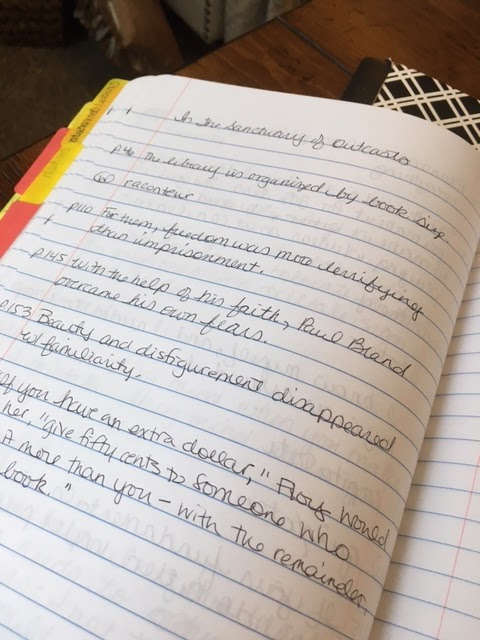 In the Sanctuary of Outcasts
p46 The library is organized by book size
(w) raconteur
p110 For them, freedom was more terrifying
than imprisonment.
p145 With the help of his faith, Paul Brand
overcame his own fears.
p153 Beauty and disfigurement disappeared
w/ familiarity.
If you have an extra dollar," Floyd would
her, "give fifty cents to someone who
it more than you - with the remainder,
book."